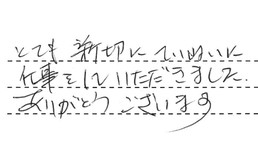 とても 親切に ていねいに
仕事をしていただきました.
ありがとう ございます